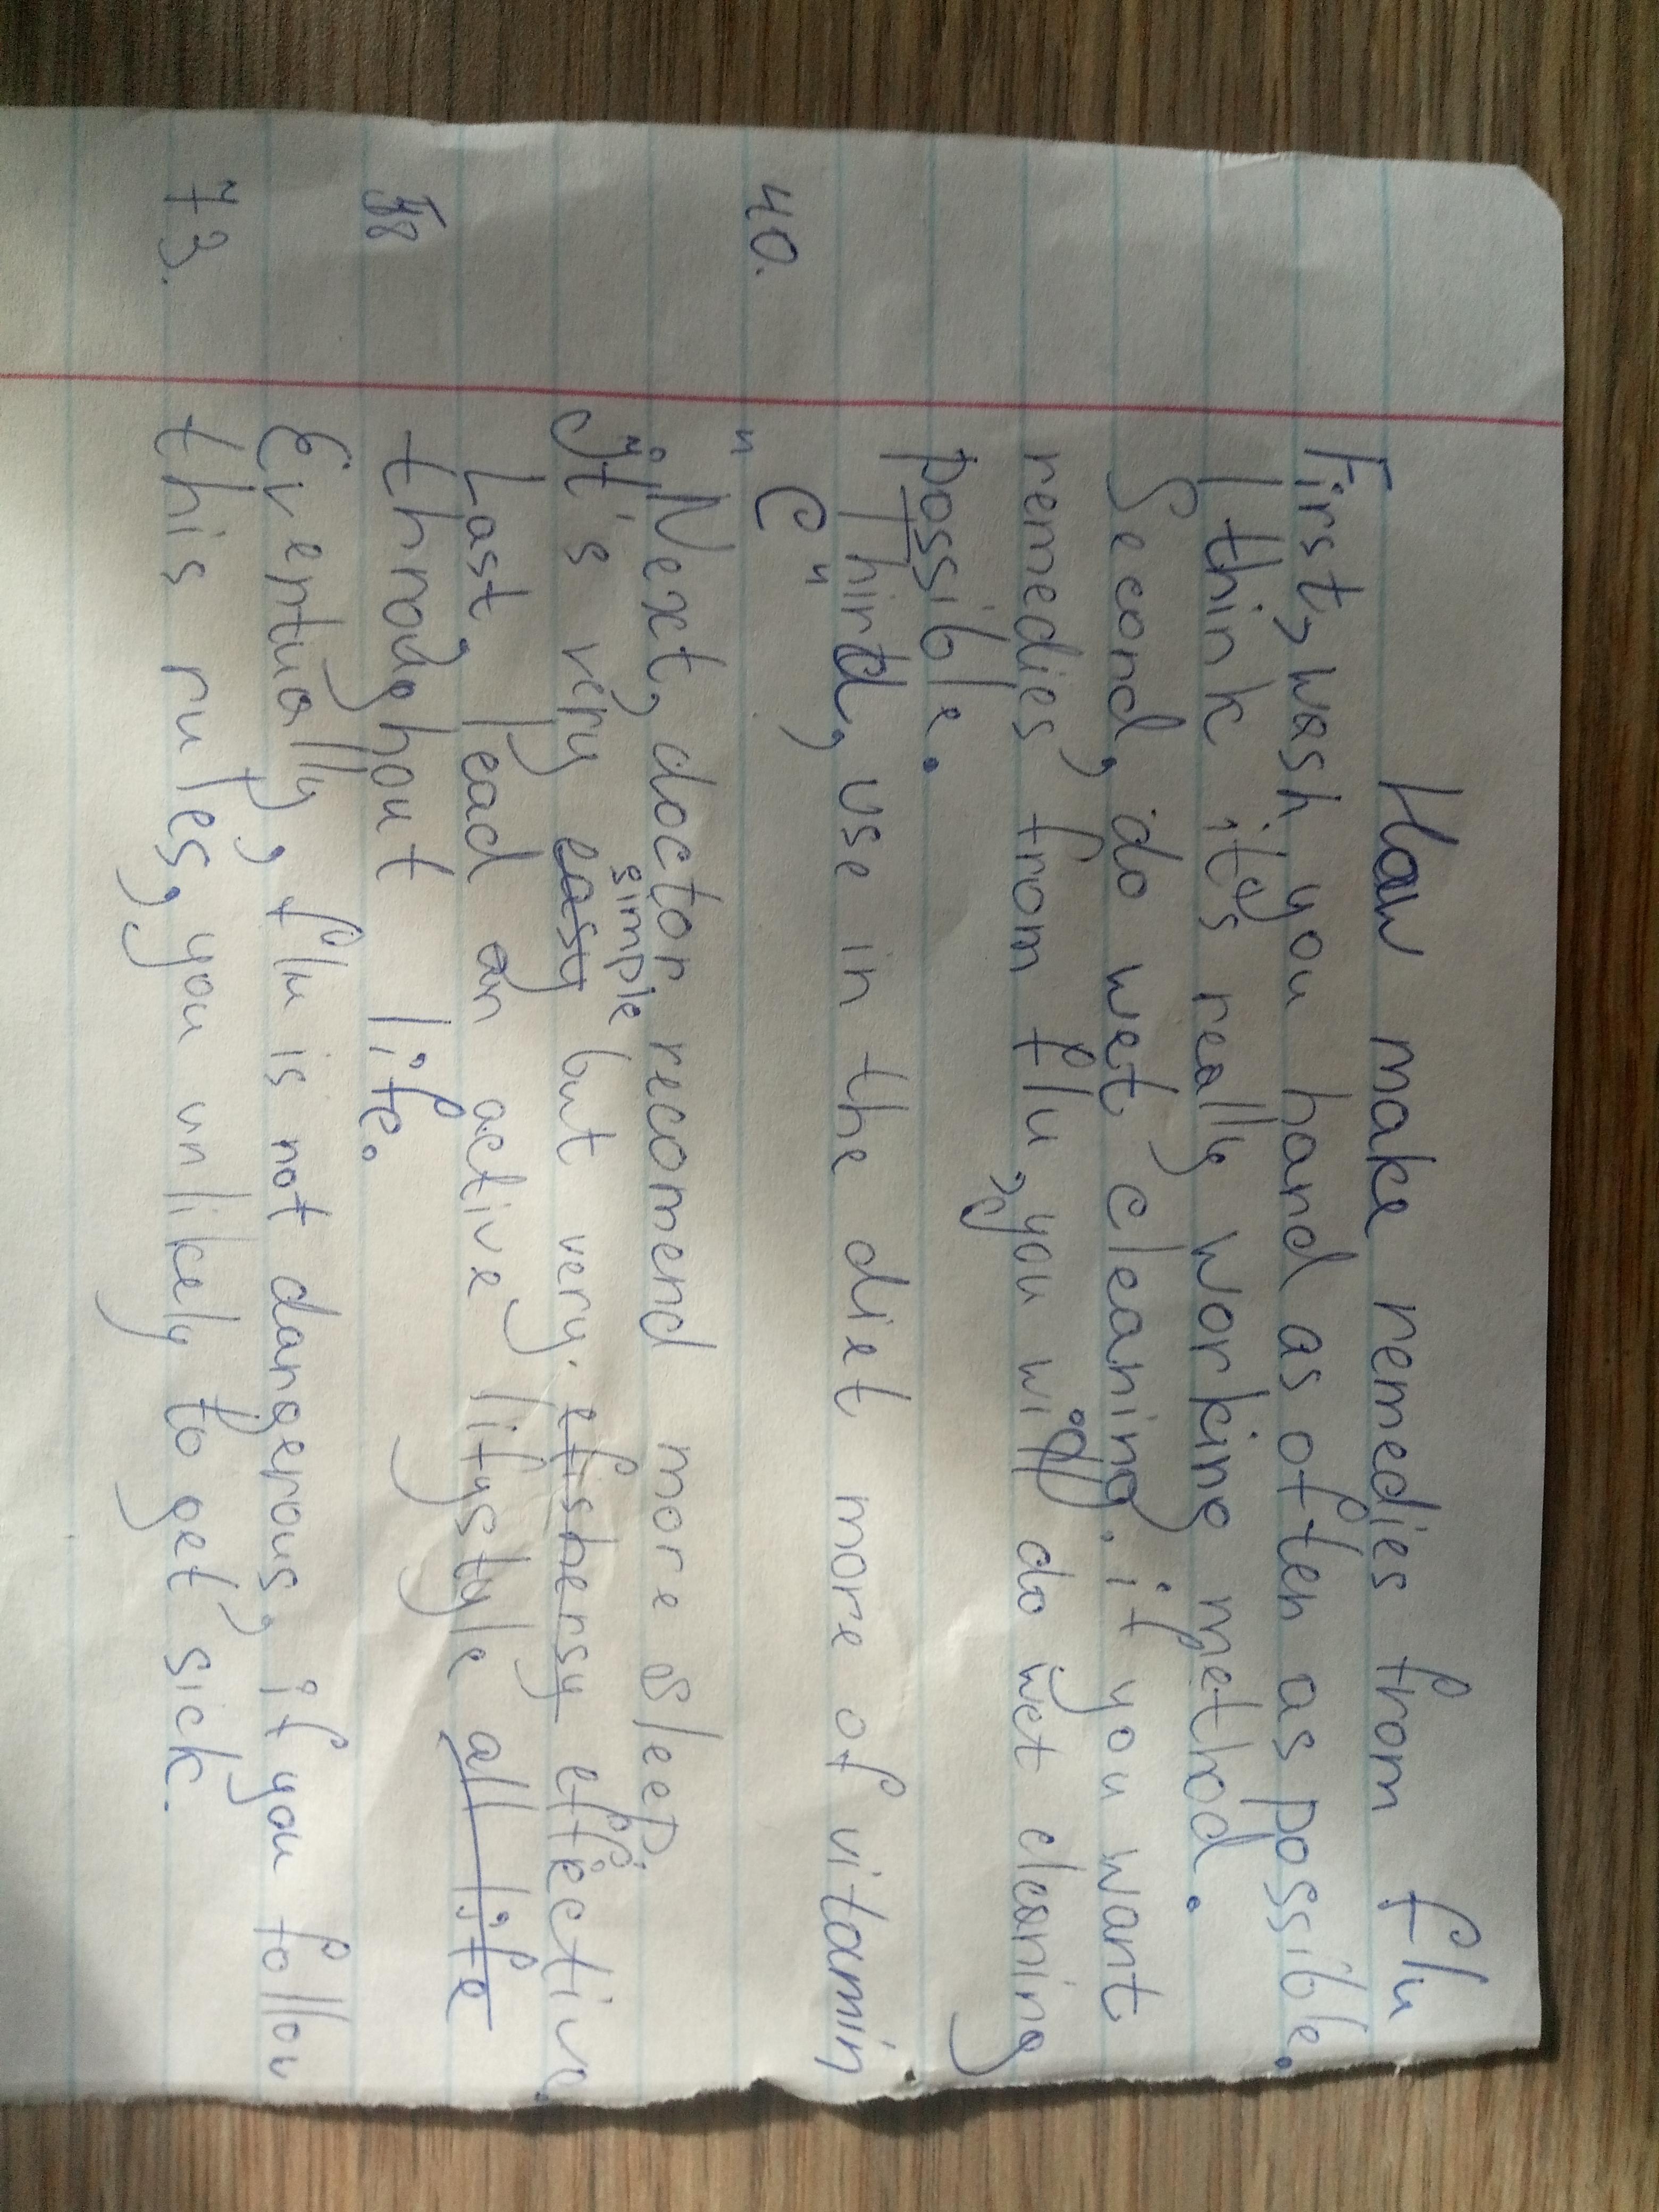 How make remedies from flu
First, wash you hand as often as possible.
I think it's really working method.
Second, do wet cleaning. if you want
remedies from flu, you will do wet cleaning
possible.
Third, use in the diet more of vitamin
40. "C"
Next, doctor recomend more sleep.
simple
It's very easy but very. efishersy effective.
Last, lead an active lifystyle all life
58 throughout life.
Eventually, flu is not dangerous, if you follow
73. this rules, you unlikely to get sick.